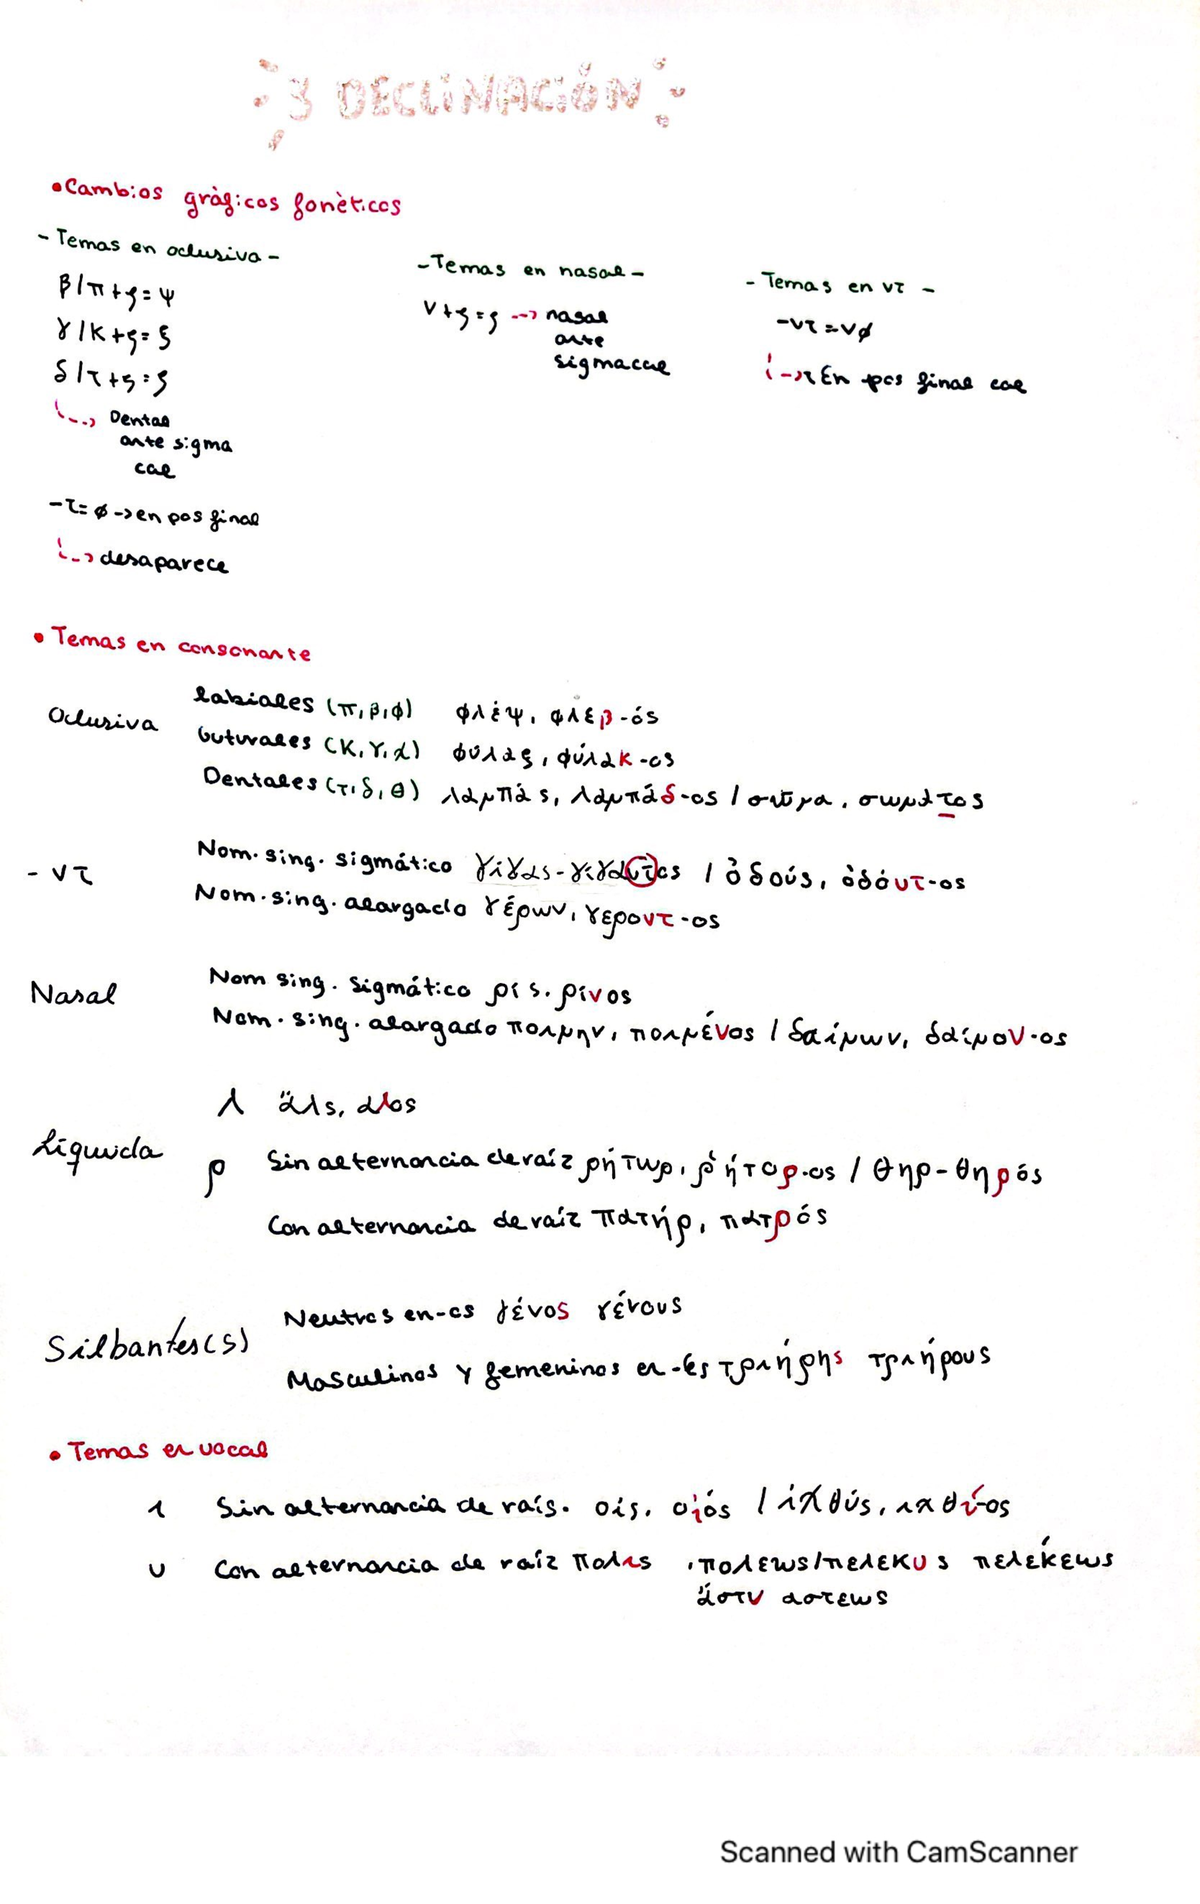 3 DECLINACIÓN
•Cambios gràficos fonèticos
- Temas en oclusiva -
β/π+ς=ψ
γ/κ+ς=ξ
δ/τ+ς=ς
Dental
ante sigma
cae
-τ=ø->en pos final
desaparece
-Temas en nasal-
ν+ς=ς --> nasal
ante
sigma cae
- Temas en ντ -
-ντ=νø
-->τ En pos final cae
• Temas en consonante
Oclusiva
labiales (π,β,φ) φλέψ, φλεβ-ós
Guturales (κ,γ,χ) φύλαξ, φύλακ-os
Dentales (τ,δ,θ) λαμπάs, λαμπάδ-os / σῶμα, σωματos
- ντ
Nom. sing. sigmático γίγαs-γίγαντos / ὀδούs, ὀδόντ-os
Nom. sing. alargado γέρων, γεροντ-os
Nasal
Nom sing. sigmático ρίs. ρίνos
Nom. sing. alargado ποιμην, ποιμένos / δαίμων, δαίμον-os
Líquida
λ ἅλs, αλos
ρ Sin alternancia de raíz ρήτωρ, ῥήτορ-os / θηρ-θηρós
Con alternancia de raíz πατήρ, πατρós
Silbantes(s)
Neutros en-os γένos γένουs
Masculinos y femeninos en -ës τριήρηs τριήρουs
• Temas en vocal
ι Sin alternancia de raís. οίs, οἰós / ἰχθύs, ιχθύ-os
υ Con alternancia de raíz πολιs ,πολεωs/πελεκυs πελέκεωs
ἄστυ αστεωs
Scanned with CamScanner